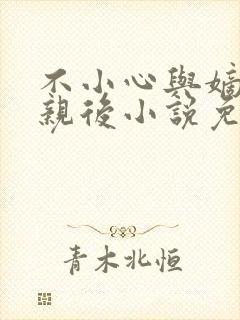 不小心與嫡
親後小說免
青木北恒